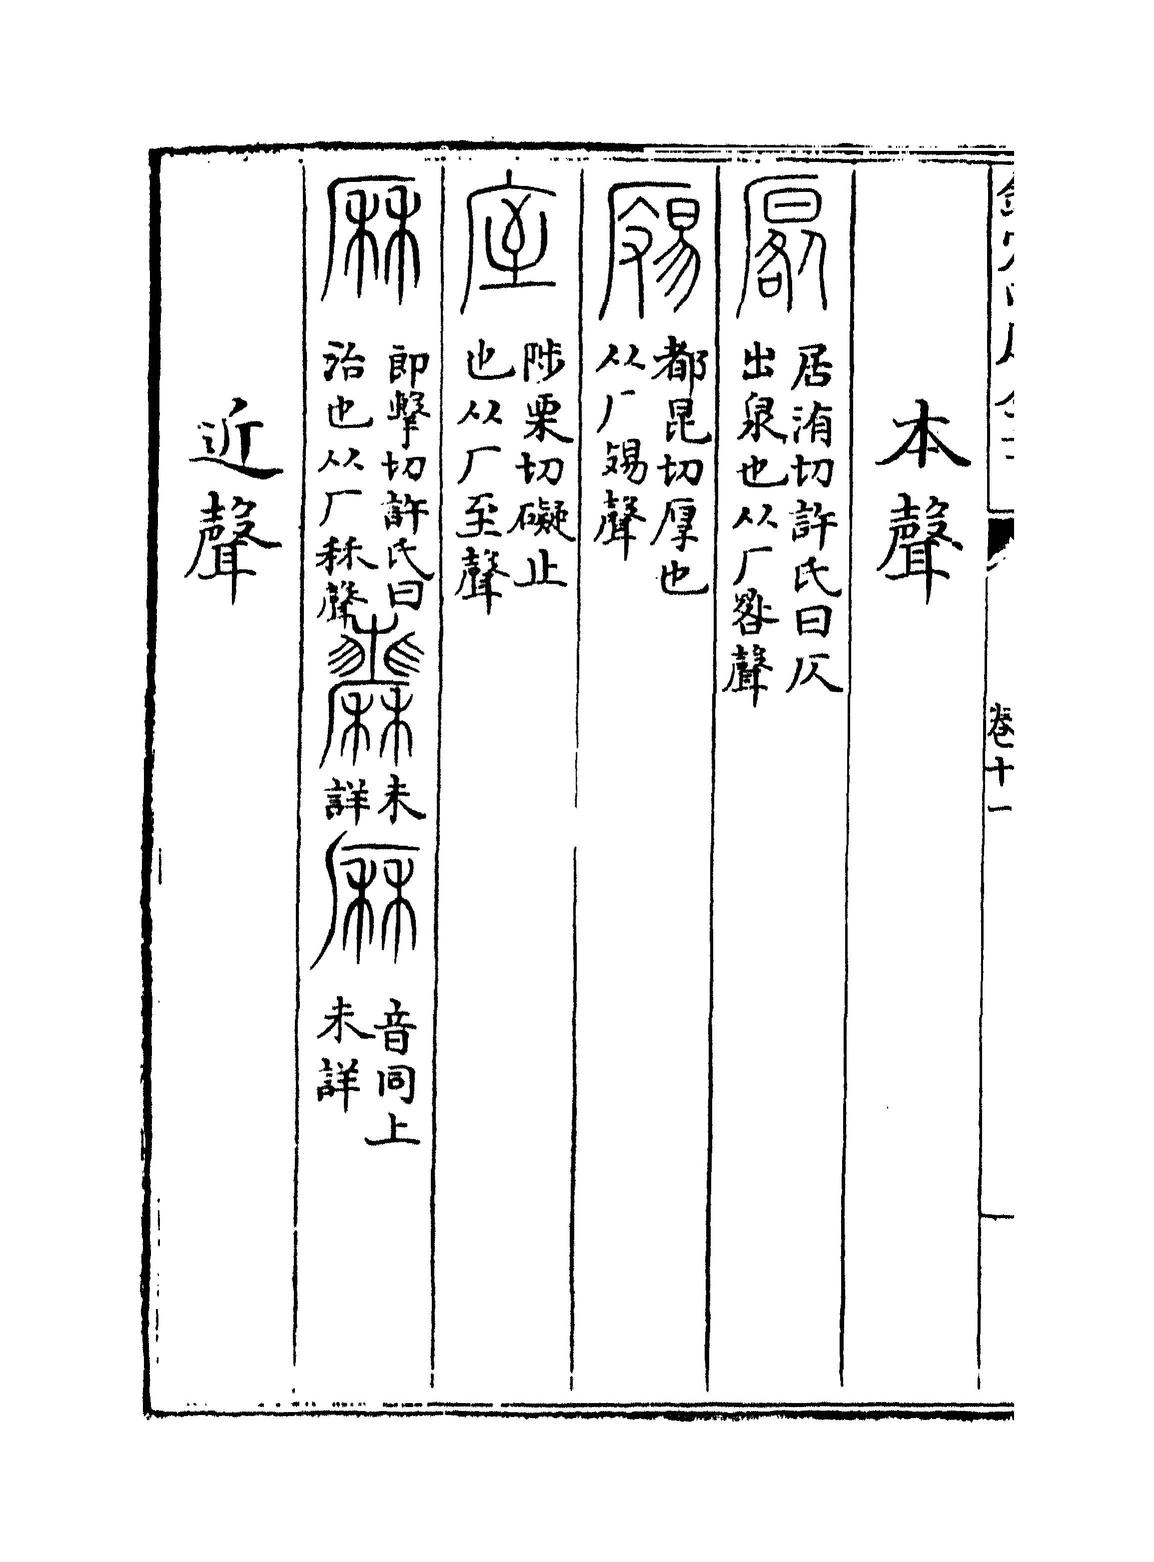 卷十一
本聲
厬
居洧切許氏曰仄
出泉也从厂晷聲
都昆切厚也
从厂聲
厔
陟栗切礙止
也从厂至聲
厤
即擊切許氏曰
治也从厂秝聲
未
詳
厤
音同上
未詳
近聲